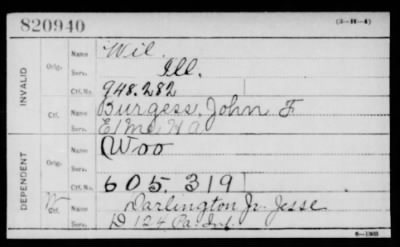 820940
(3-H-4)
INVALID
Orig.
Name
Wil.
Serv.
Ill.
Ctf. No.
948.282
Ctf.
Name
Burgess, John F
Serv.
DEPENDENT
Orig.
Name
Woo
Serv.
Ctf. No.
605.319
Ctf.
Name
Darlington Jr. Jesse
Serv.
D 124 Pa. Inf.